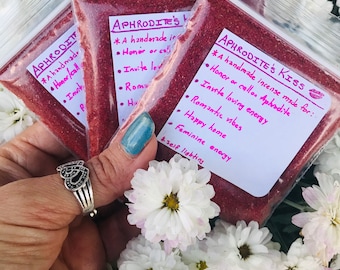 APHRODITE'S KISS
* A handmade incense made for:
• Honor or call on Aphrodite
• Invite loving energy
• Romantic vibes
• Happy home
• Feminine energy
& self
APHRODITE'S
* A handmade
• Honor or call
• Invite
• Romantic
•
APHRODITE'S
* A handmade
• Honor
• Invite
•